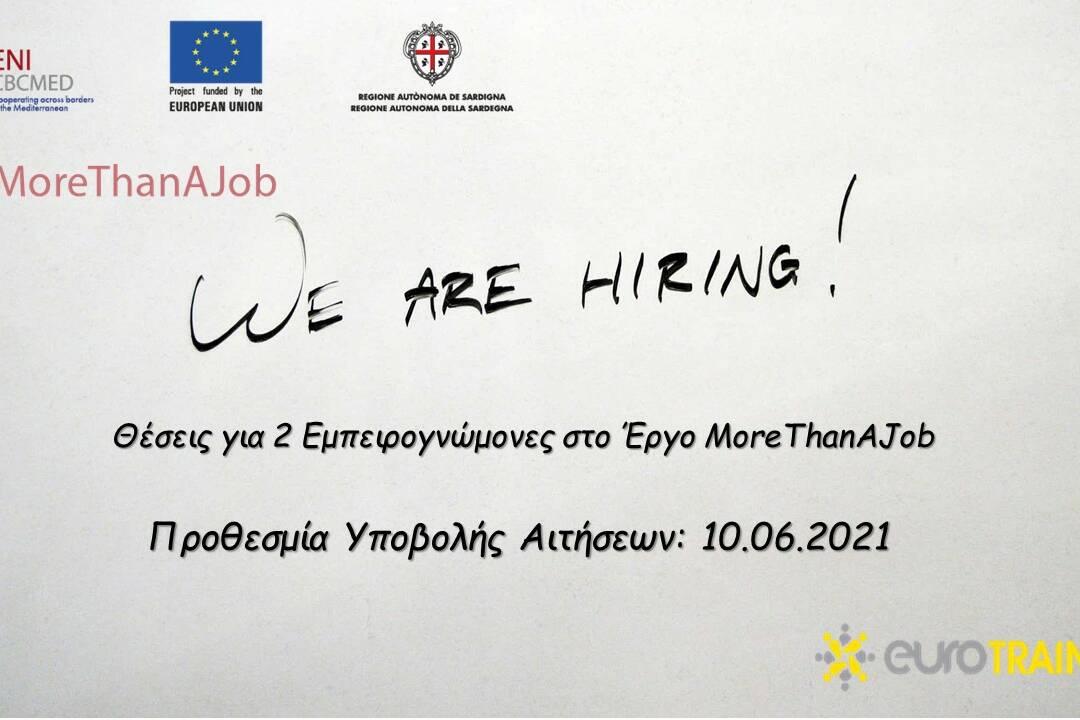 ENI
CBCMED
cooperating across borders
the Mediterranean
Project funded by the
EUROPEAN UNION
REGIONE AUTÒNOMA DE SARDIGNA
REGIONE AUTONOMA DELLA SARDEGNA
MoreThanAJob
WE ARE HIRING!
Θέσεις για 2 Εμπειρογνώμονες στο Έργο MoreThanAJob
Προθεσμία Υποβολής Αιτήσεων: 10.06.2021
euroTRAIN